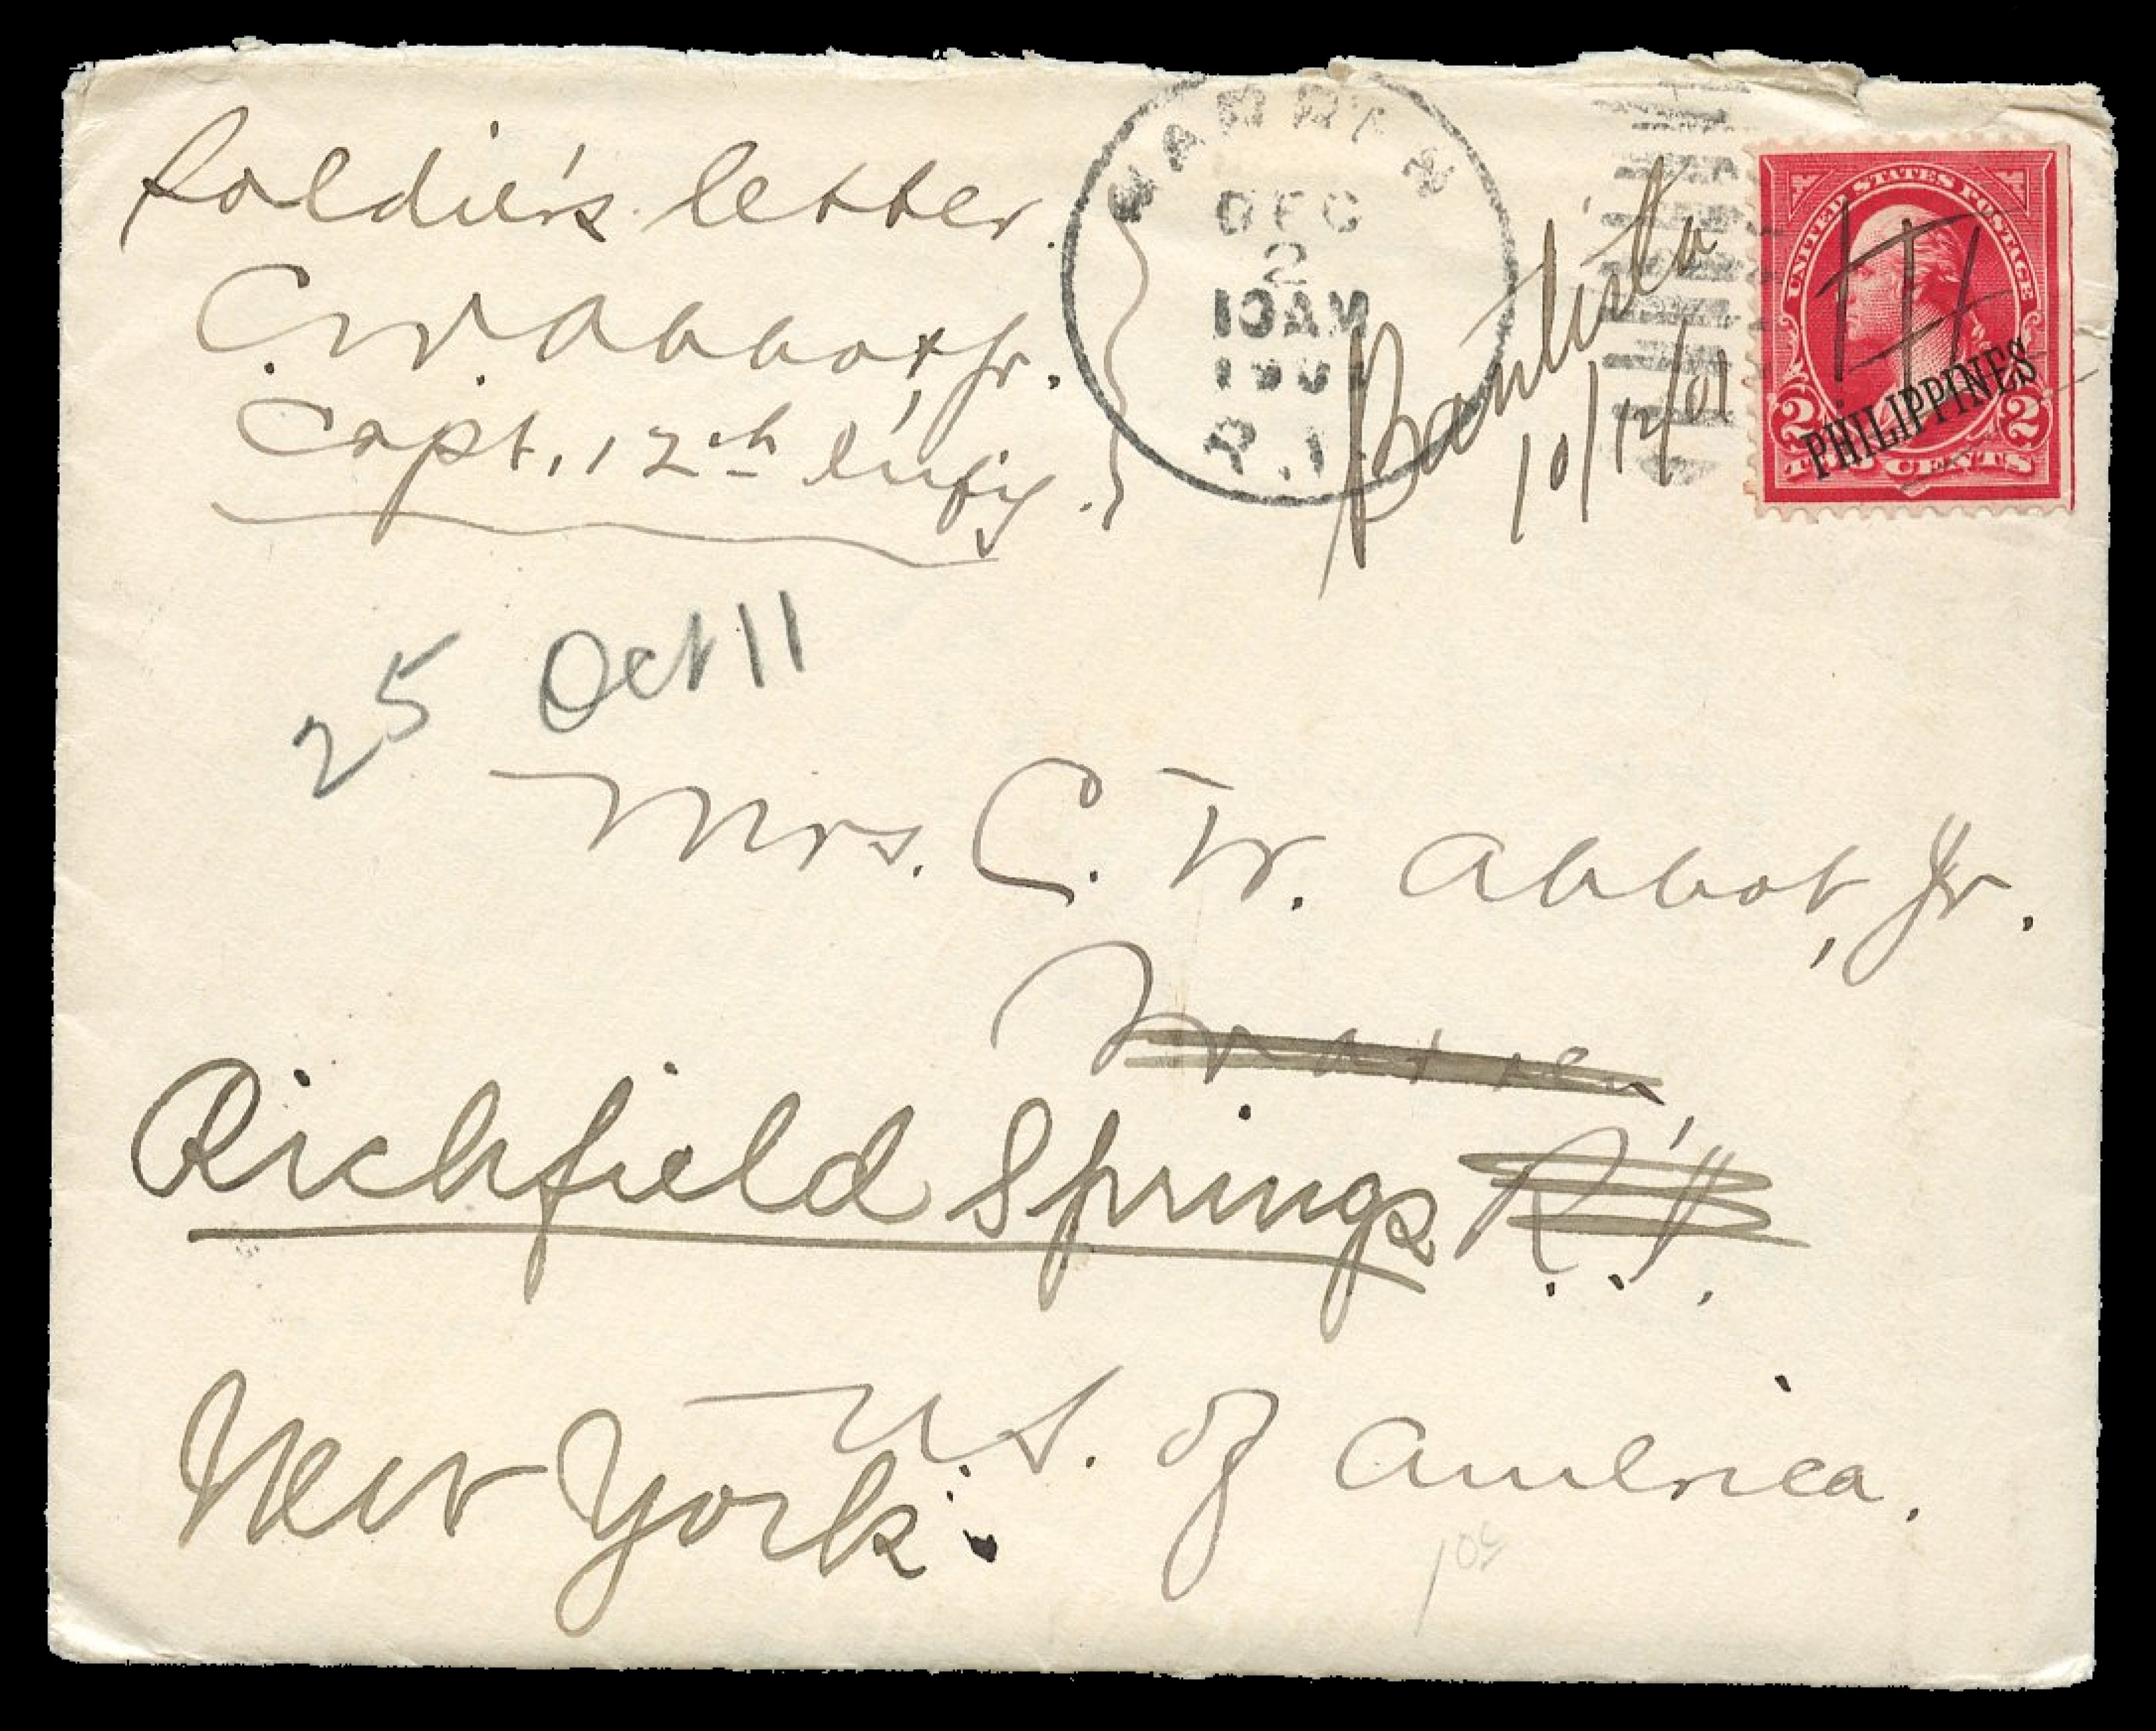 Soldier's letter.
C. W. Abbot, Jr.
Capt. 12th Infty.
DEC
2
10AM
P.I.
Bautista
10/12/01
UNITED STATES POSTAGE
PHILIPPINES
2 2
TWO CENTS
25 Oct 11
Mrs. C. W. Abbot, Jr.
Warren,
Richfield Springs R.I.,
New York. U.S. of America.
10¢